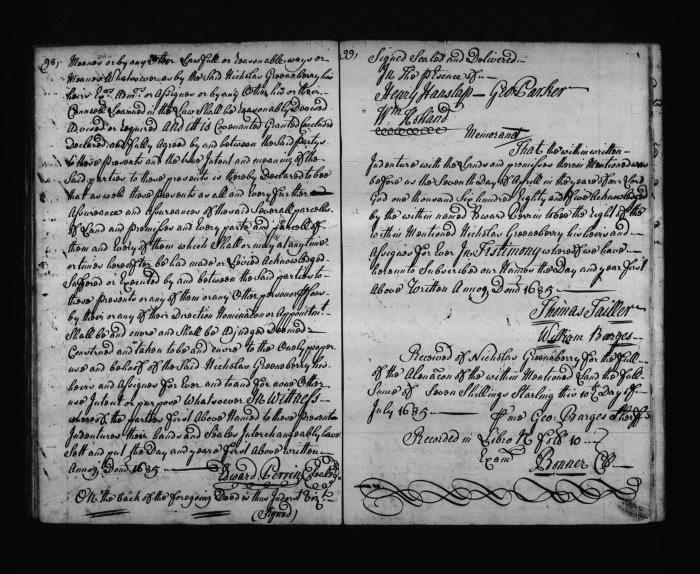 98,
Meanes or by any Other Lawfull or reasonable ways or
Meanes Whatsoever as by the Said Nicholas Greeneberry his
heirs Exrs. Admrs. or Assignes or by any Other his or their
Councell Learned in the Law Shall be reasonably Devised
Advised or required And it is Covenanted Granted Concluded
Declared and fully Agreed by and between the Said Partys
to these presents and the true Intent and meaning of the
Said parties to these presents is hereby Declared to bee
that as well these presents as all and Every further
Assurance and Assureances of the said Severall parcells
of Land and Premisses and Every parte and parcell of
them and Every of them which Shall or may at any time
or times hereafter be had made or Levied Acknowledged
Suffered or Executed by and between the Said parties to
these presents or any of them or any Other person or persons
by their or any of their Direction Nomination or Appointmt.
Shall be and enure and Shall be Adjudged Deemed
Construed and taken to be and enure to the Onely proper
use and behoof of the Said Nicholas Greeneberry his
heirs and Assignes for Ever and to and for none Other
use Intent or purpose Whatsoever In Witness
whereof the parties first Above Named to these Presents
Indentures their hands and Seales Interchangeably have
Sett and put the Day and yeare first Above written
Annoq Domi 1685 Edward Perrin Sealed
On the back of the foregoing Deed is thus Indorst Vizt.
(Signed)
99,
Signed Sealed and Delivered
In the presence of
Henry Hanslap Geo Parker
Wm Holland
Memorand
That the within written
Indenture with the Lands and premisses therein Mentioned was
before us the Seventh Day of Aprill in the yeare of our Lord
God one thousand Six hundred Eighty and five Acknowledged
by the within named Edward Perrin to be the right of the
within Mentioned Nicholas Greeneberry his heirs and
Assignes for Ever In Testimony whereof we have
hereunto Subscribed our Names the Day and year first
Above Written Annoq Domi 1685
Thomas Tailler
William Burges
Received of Nicholas Greeneberry for the full
of the Alienation of the within Mentioned Land the full
Sume of Seven Shillings Starling this 10th Day of
July 1685 Pr me Geo: Burges Sheriff
Recorded in Libro folo 10
Examd
Bonner Clk